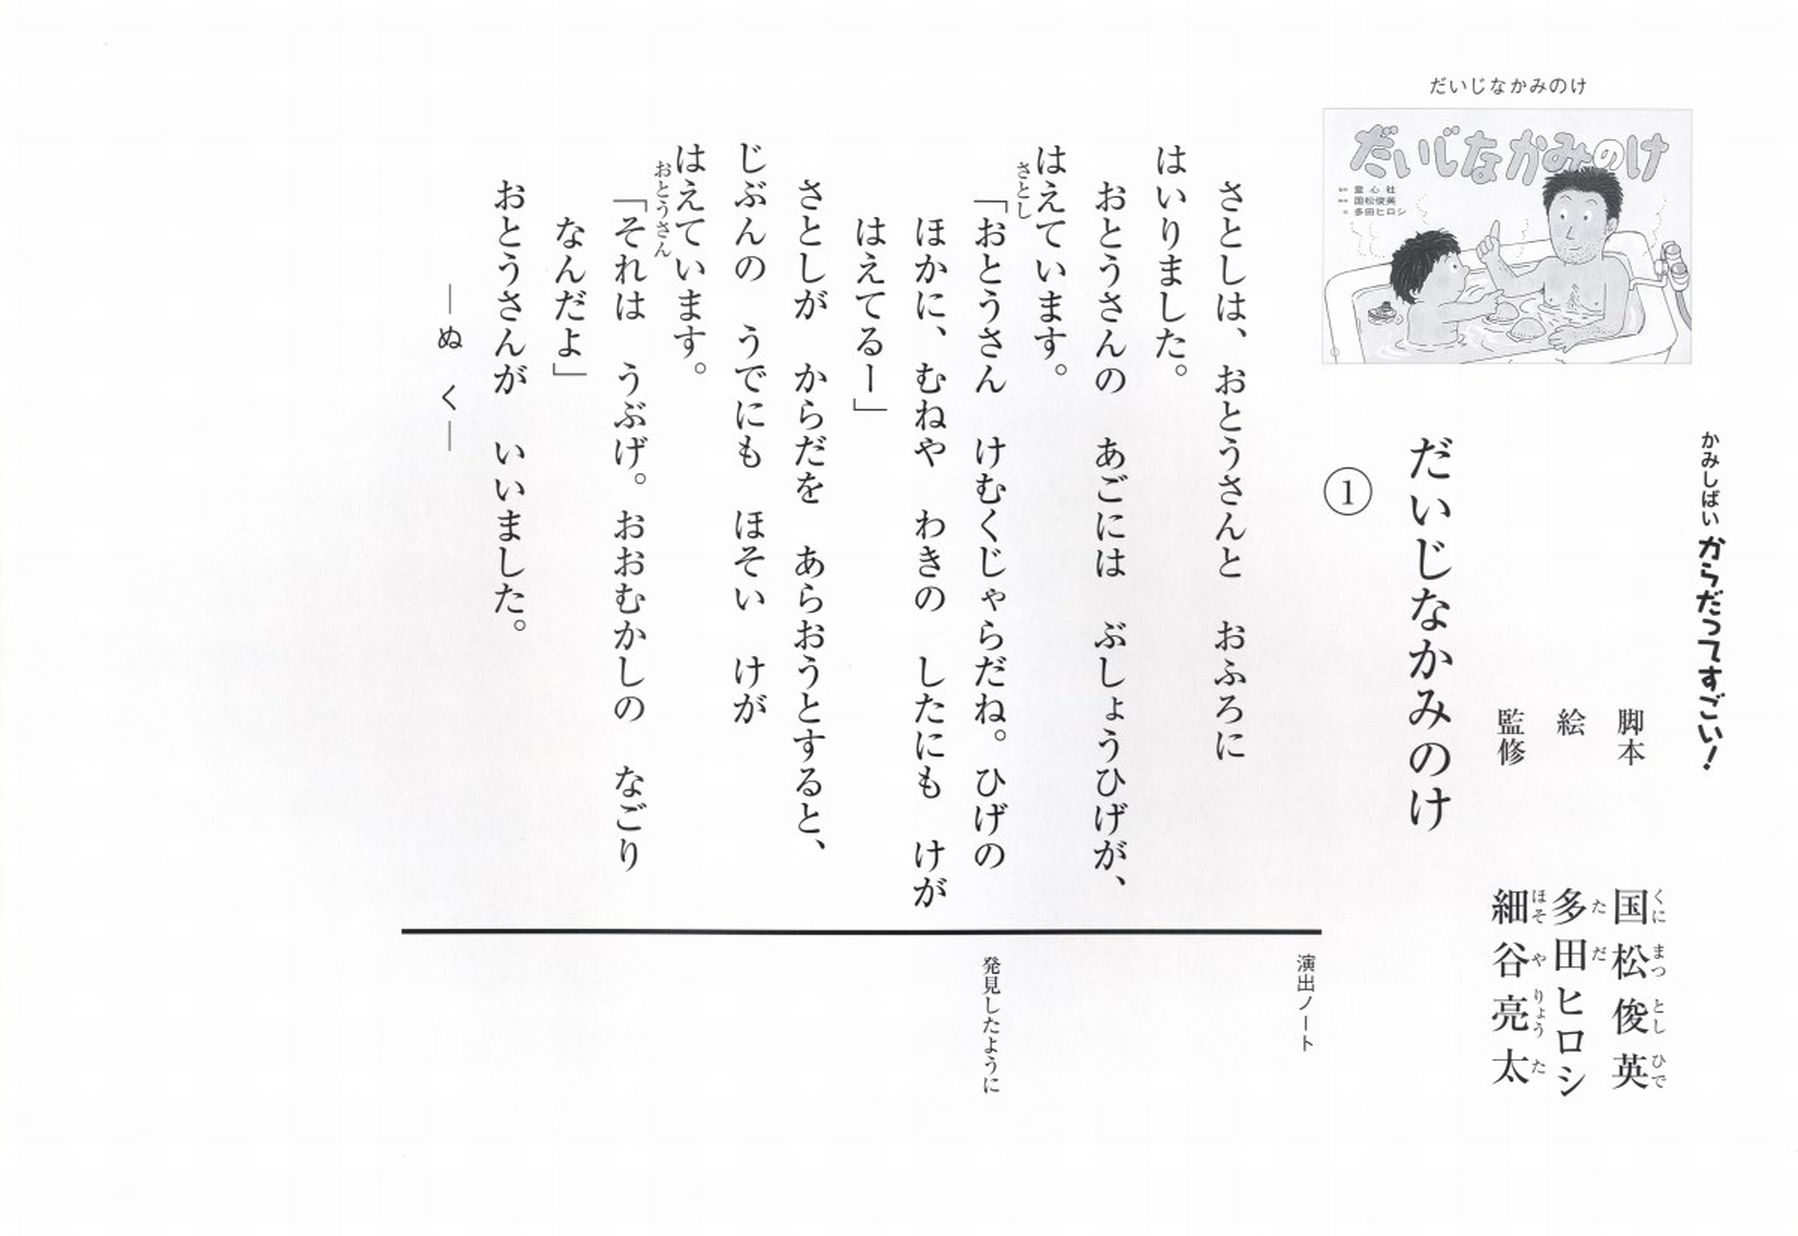 だいじなかみのけ
だいじなかみのけ
童心社
国松俊英
多田ヒロシ
かみしばい からだってすごい！
脚本 国松俊英
くにまつとしひで
絵 多田ヒロシ
ただ
監修 細谷亮太
ほそやりょうた
だいじなかみのけ
①
さとしは、おとうさんと おふろに
はいりました。
おとうさんの あごには ぶしょうひげが、
はえています。
さとし
「おとうさん けむくじゃらだね。ひげの
ほかに、むねや わきの したにも けが
はえてるー」
さとしが からだを あらおうとすると、
じぶんの うでにも ほそい けが
はえています。
おとうさん
「それは うぶげ。おおむかしの なごり
なんだよ」
おとうさんが いいました。
―ぬ く―
演出ノート
発見したように